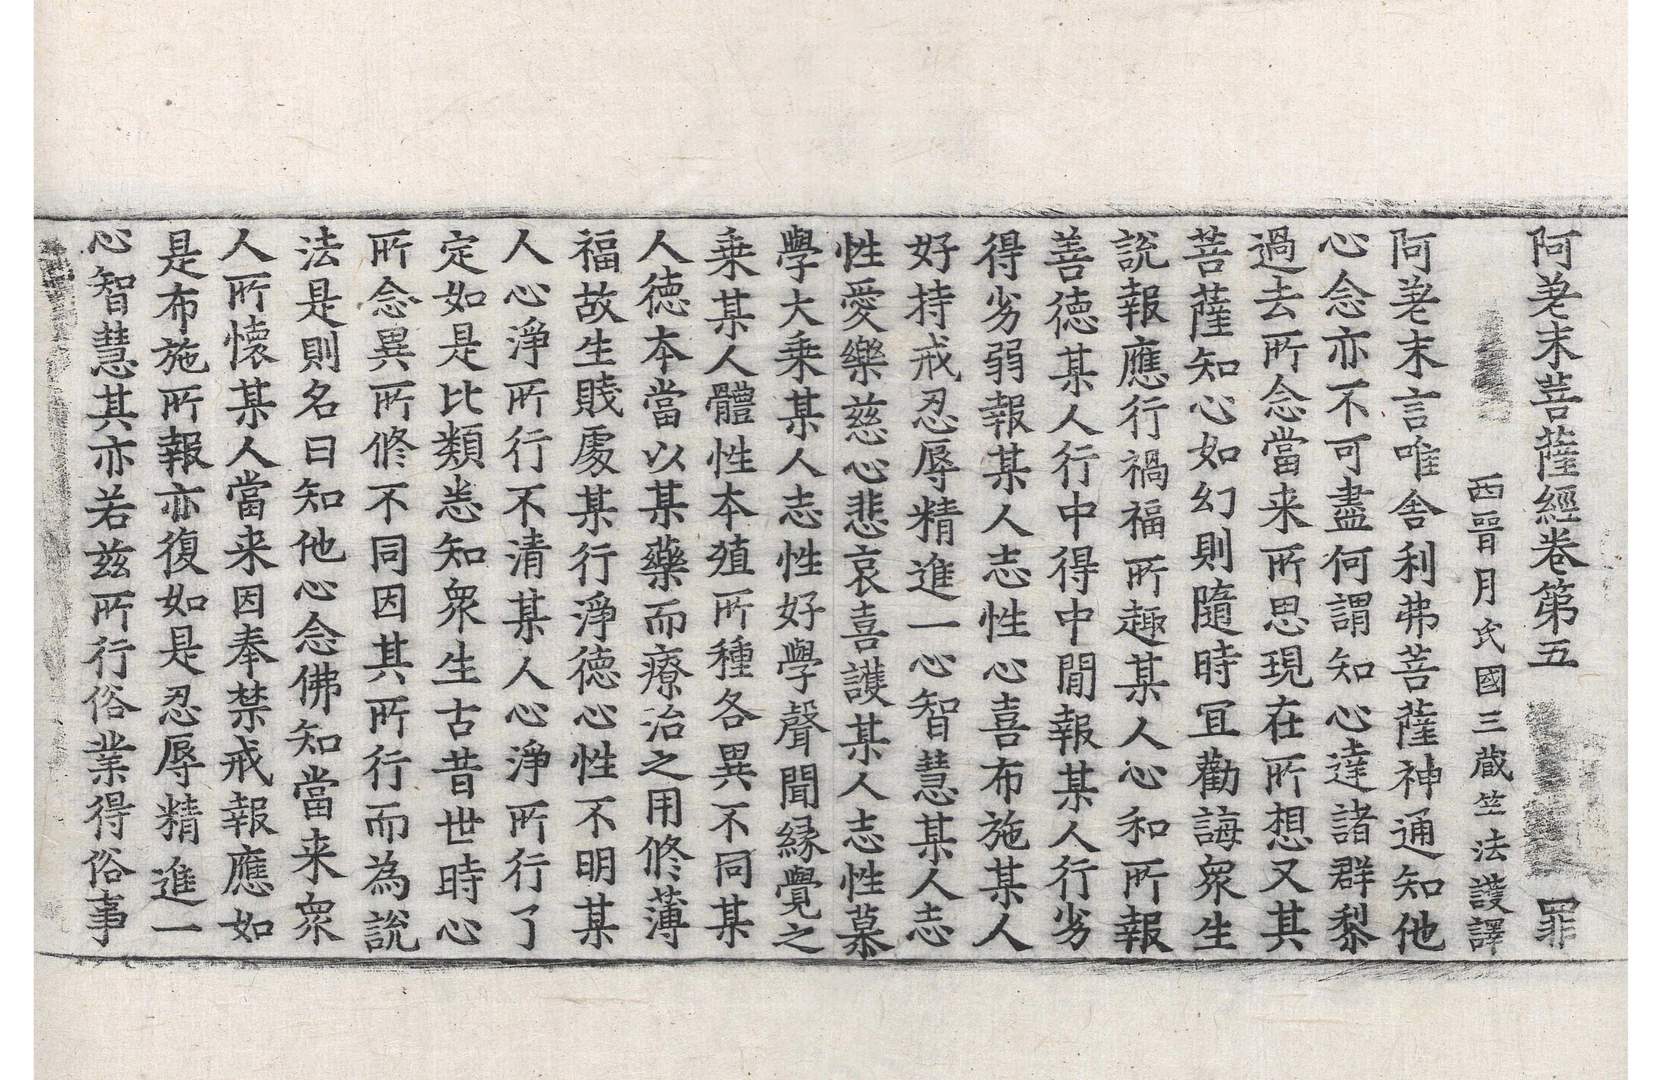 阿差末菩薩經卷第五 罪
西晉月氏國三蔵竺法護譯
阿差末言唯舎利弗菩薩神通知他
心念亦不可盡何謂知心達諸群黎
過去所念當来所思現在所想又其
菩薩知心如幻則隨時冝勸誨衆生
說報應行禍福所趣某人心和所報
善德某人行中得中閒報某人行劣
得劣弱報某人志性心喜布施某人
好持戒忍辱精進一心智慧某人志
性愛樂慈心悲哀喜護某人志性慕
學大乗某人志性好學聲聞縁覺之
乗某人體性本殖所種各異不同某
人徳本當以某藥而療治之用修薄
福故生賎處某行淨德心性不明某
人心淨所行不清某人心淨所行了
定如是比類悉知衆生古昔世時心
所念異所修不同因其所行而為說
法是則名曰知他心念佛知當来衆
人所懐某人當来因奉禁戒報應如
是布施所報亦復如是忍辱精進一
心智慧其亦若兹所行俗業得俗事